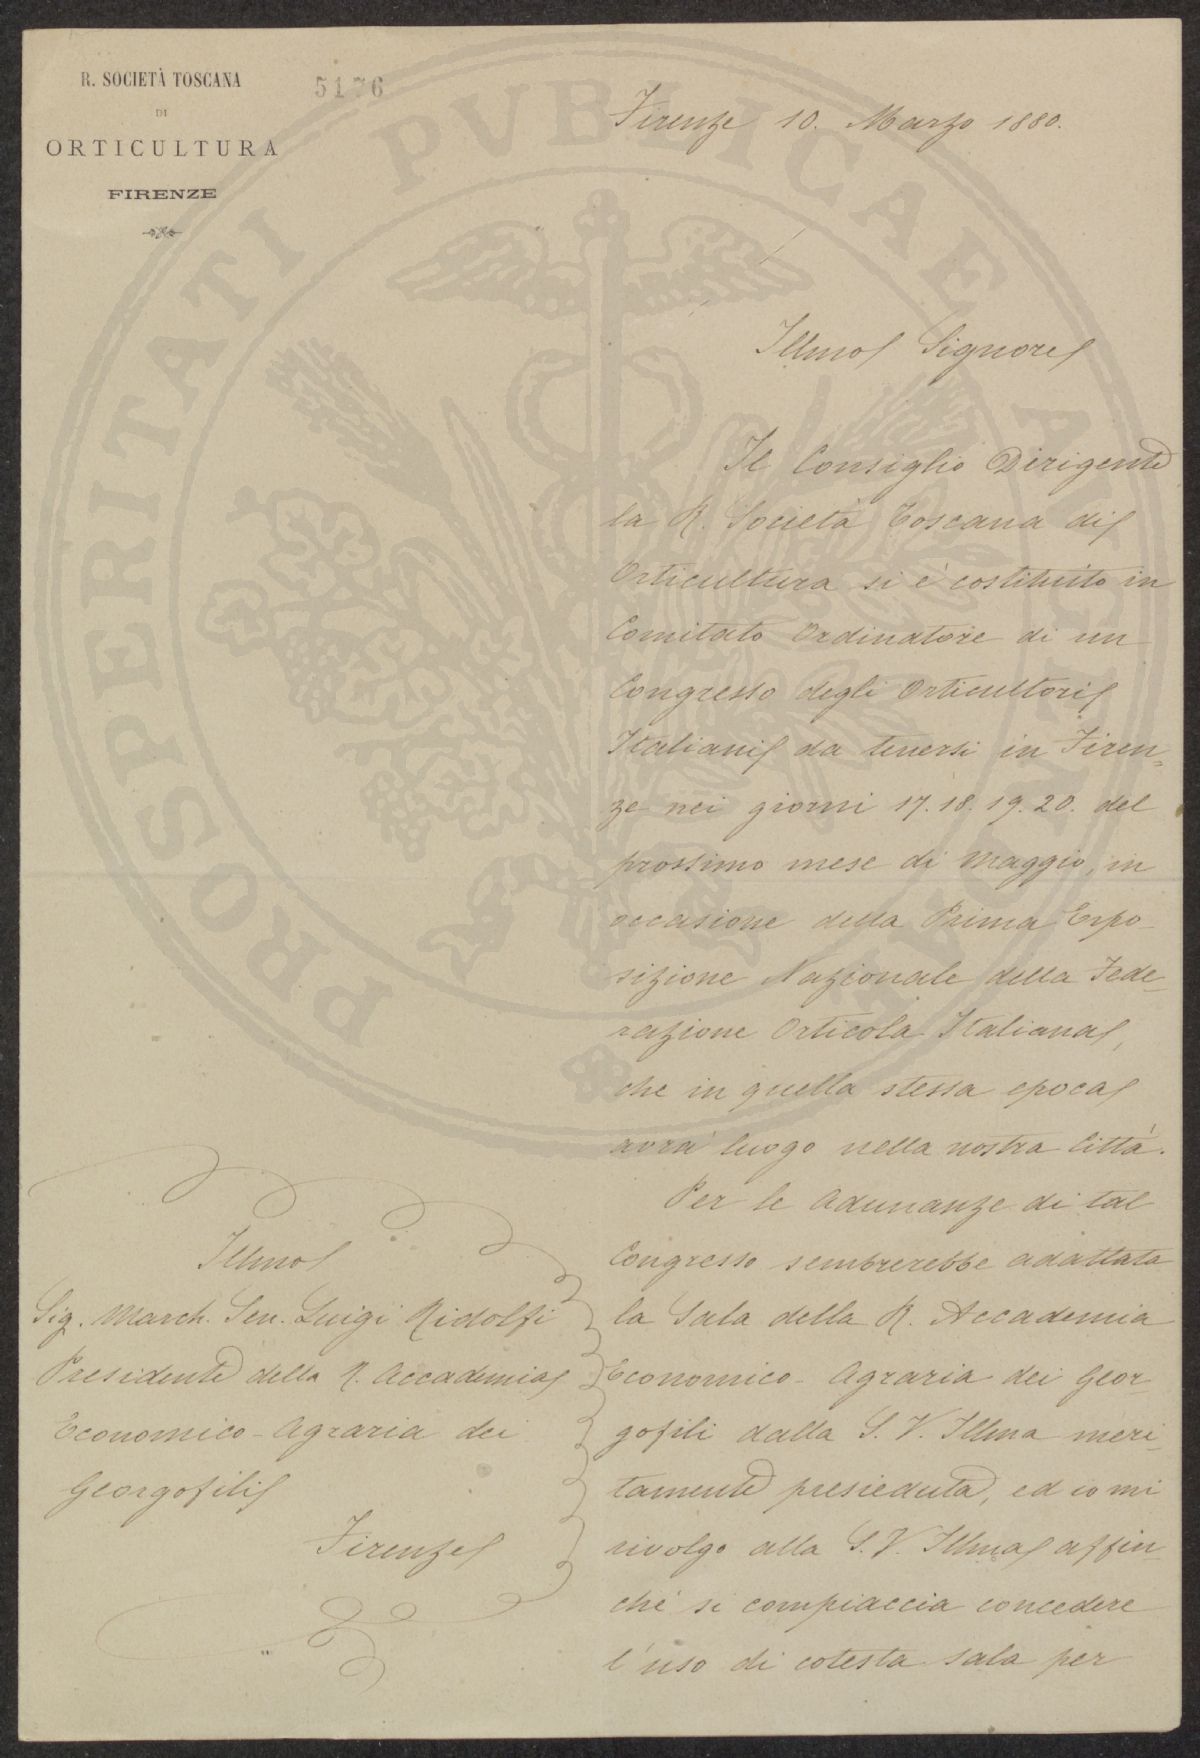 R. SOCIETÀ TOSCANA
DI
ORTICULTURA
FIRENZE
5176
PROSPERITATI PVBLICAE AVGENDAE
Firenze 10. Marzo 1880.
Illmo Signore
Il Consiglio Dirigente
la R. Società Toscana di
Orticultura si è costituito in
Comitato Ordinatore di un
Congresso degli Orticultori
Italiani da tenersi in Firen=
ze nei giorni 17. 18. 19. 20. del
prossimo mese di Maggio, in
occasione della Prima Espo-
sizione Nazionale della Fede-
razione Orticola Italiana,
che in quella stessa epoca
avrà luogo nella nostra Città.
Per le Adunanze di tal
Congresso sembrerebbe adattata
la Sala della R. Accademia
Economico-Agraria dei Geor-
gofili dalla S. V. Illma meri-
tamente presieduta, ed io mi
rivolgo alla S. V. Illma affin-
ché si compiaccia concedere
l'uso di cotesta sala per
Illmo
Sig. March. Sen. Luigi Ridolfi
Presidente della R. Accademia
Economico-Agraria dei
Georgofili
Firenze